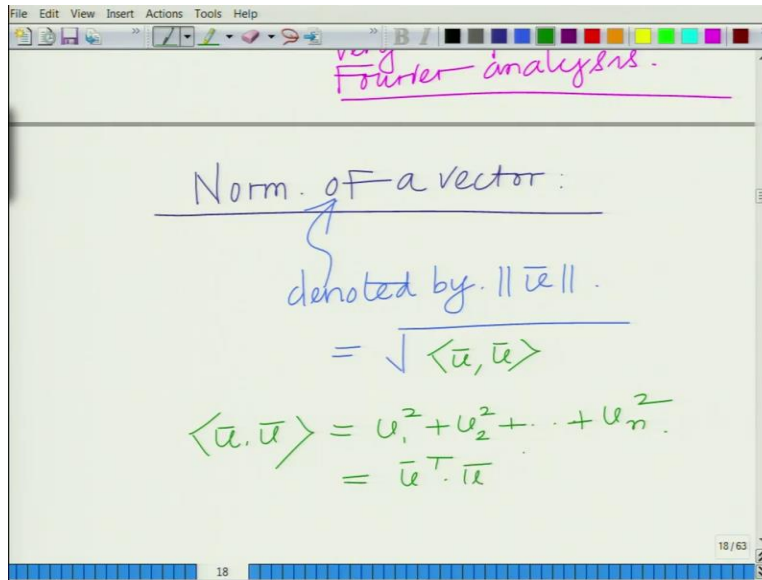 File Edit View Insert Actions Tools Help
B I
very
Fourier analysis.
Norm. of a vector:
denoted by. ||ū||.
= √⟨ū, ū⟩
⟨ū.ū⟩ = u₁² + u₂² + ... + uₙ².
= ūᵀ.ū
18/63
18